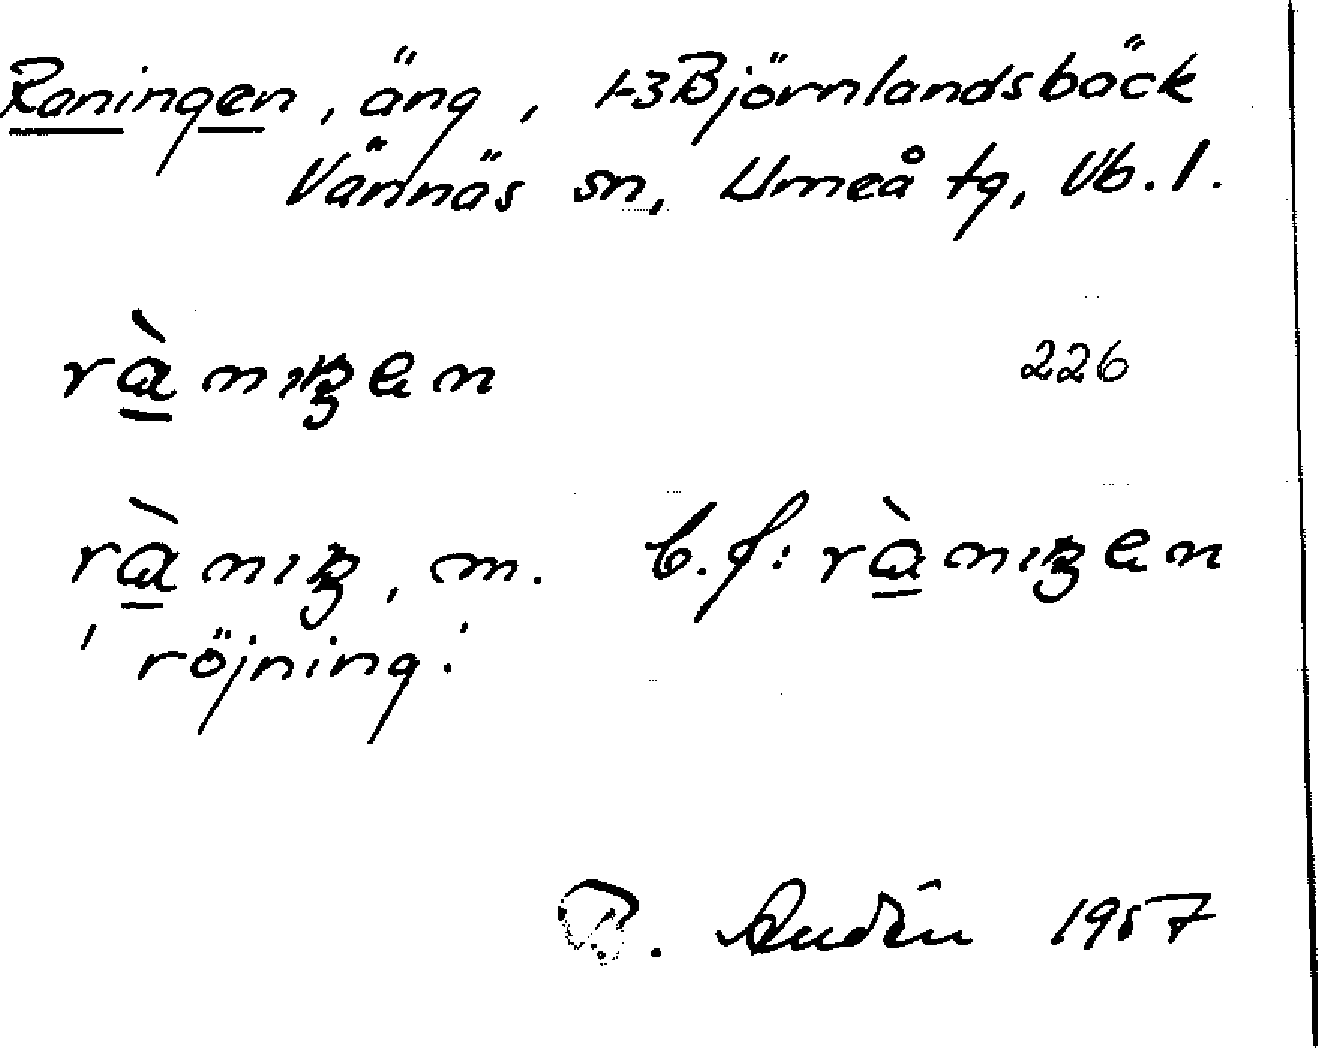 Raningen, äng, 1-3 Björnlandsbäck
Vännäs sn, Umeå tg, Vb. l.
rànıŋen 226
rànıŋ, m. b.f: rànıŋen
'röjning.'
Audén 1957